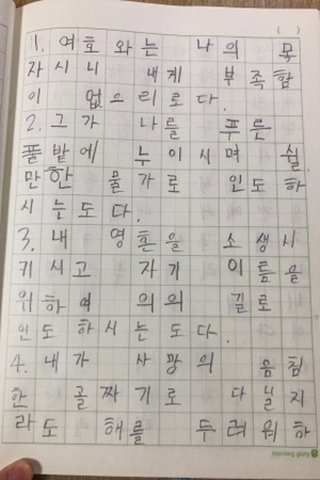 1. 여호와는 나의 목
자시니 내게 부족함
이 없으리로다.
2. 그가 나를 푸른
풀밭에 누이시며 쉴
만한 물가로 인도하
시는도다.
3. 내 영혼을 소생시
키시고 자기 이름을
위하여 의의 길로
인도하시는도다.
4. 내가 사망의 음침
한 골짜기로 다닐지
라도 해를 두려워하
morning glory